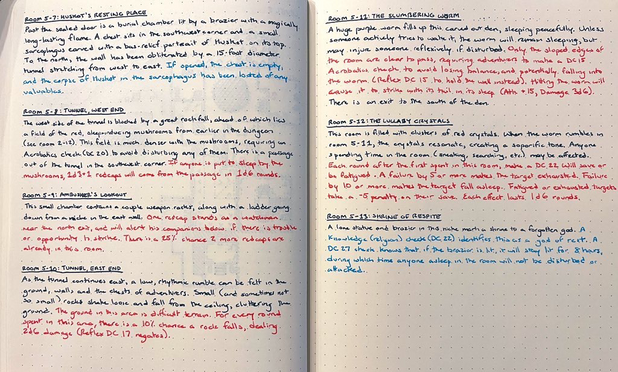 ROOM 5-7: HUSKAT'S RESTING PLACE
Past the sealed door is a burial chamber lit by a brazier with a magically
long-lasting flame. A chest sits in the southwest corner and a small
sarcophagus carved with a bas-relief portrait of Huskat on its top.
To the north, the wall has been obliterated by a 15-foot diameter
tunnel stretching from west to east. If opened, the chest is empty,
and the corpse of Huskat in the sarcophagus has been looted of any
valuables.
ROOM 5-8: TUNNEL, WEST END
The west side of the tunnel is blocked by a great rockfall, ahead of which lies
a field of the red, sleep-inducing mushrooms from earlier in the dungeon
(see room 2-12). This field is much denser with the mushrooms, requiring an
Acrobatics check (DC 20) to avoid disturbing any of them. There is a passage
out of the tunnel in the southwest corner. If anyone is put to sleep by the
mushrooms, 2d3+1 redcaps will come from the passage in 1d6 rounds.
ROOM 5-9: AMBUSHER'S LOOKOUT
This small chamber contains a couple weapon racks, along with a ladder going
down from a niche in the east wall. One redcap stands as a watchman
near the north exit, and will alert his companions below if there is trouble
or opportunity to strike. There is a 25% chance 2 more redcaps are
already in this room.
ROOM 5-10: TUNNEL, EAST END
As the tunnel continues east, a low, rhythmic rumble can be felt in the
ground, walls and the chests of adventurers. Small (and sometimes not
so small) rocks shake loose and fall from the ceiling, cluttering the
ground. The ground in this area is difficult terrain. For every round
spent in this area, there is a 10% chance a rock falls, dealing
2d6 damage (Reflex DC 17 negates).
ROOM 5-11: THE SLUMBERING WORM
A huge purple worm fills up this carved out den, sleeping peacefully. Unless
someone actively tries to wake it, the worm will remain sleeping, but
may injure someone reflexively if disturbed. Only the sloped edges
of the room are clear to pass, requiring adventurers to make a DC 15
Acrobatics check to avoid losing balance, and potentially falling into
the worm (Reflex DC 15 to hold the wall instead). Hitting the worm will
cause it to strike with its tail in its sleep (Atk +15, Damage 3d6).
There is an exit to the south of the den.
ROOM 5-12: THE LULLABY CRYSTALS
This room is filled with clusters of red crystals. When the worm rumbles in
room 5-11, the crystals resonate, creating a soporific tone. Anyone
spending time in the room (sneaking, searching, etc) may be affected.
Each round after the first spent in this room, make a DC 22 Will save or
be fatigued. A failure by 5 or more makes the target exhausted. Failure
by 10 or more makes the target fall asleep. Fatigued or exhausted targets
take a -5 penalty on their save. Each effect lasts 1d6 rounds.
ROOM 5-13: SHRINE OF RESPITE
A lone statue and brazier in this niche mark a shrine to a forgotten god. A
Knowledge (religion) check (DC 22) identifies this as a god of rest. A
DC 27 check knows that if the brazier is lit, it will stay lit for 8 hours,
during which time anyone asleep in the room will not be disturbed or
attacked.